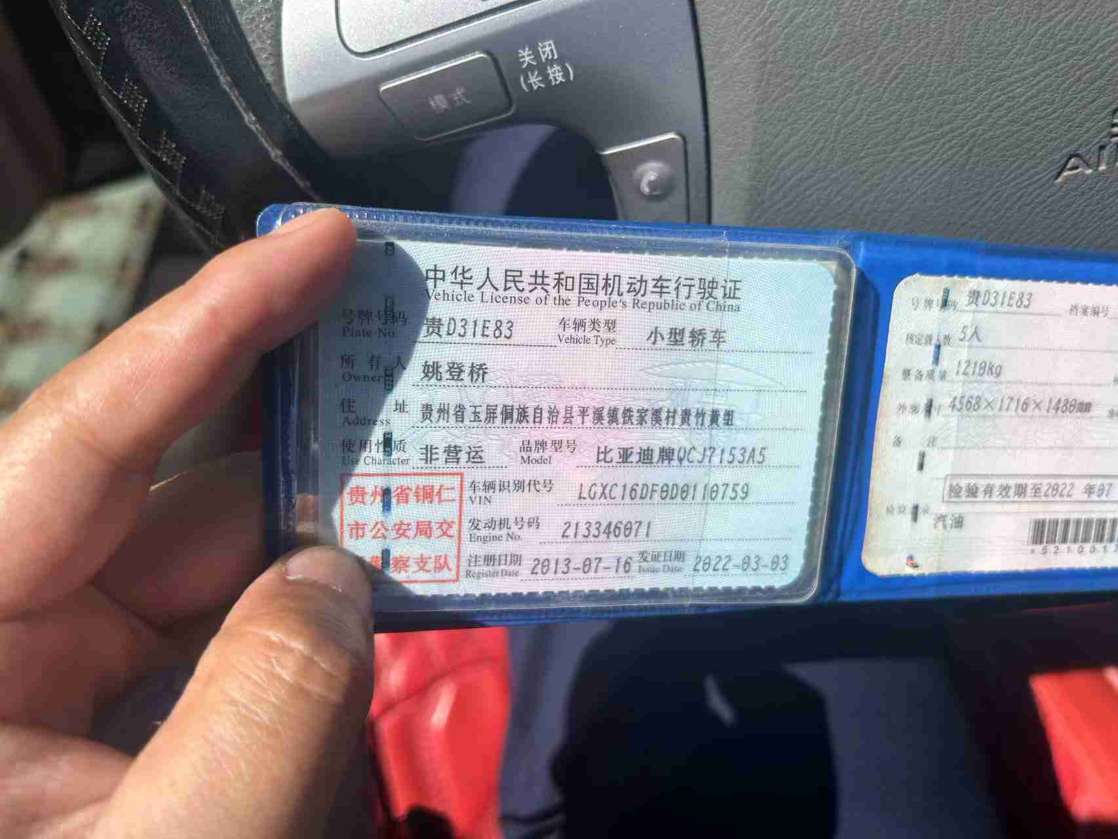 关闭
(长按)
模式
AI
中华人民共和国机动车行驶证
Vehicle License of the People's Republic of China
号牌号码 贵D31E83 车辆类型 小型轿车
Plate No. Vehicle Type
所有人 姚登桥
Owner
住址 贵州省玉屏侗族自治县平溪镇铁家溪村黄竹黄组
Address
使用性质 非营运 品牌型号 比亚迪牌QCJ7153A5
Use Character Model
贵州省铜仁
市公安局交
警察支队
车辆识别代号 LGXC16DF0D0110759
VIN
发动机号码 213346071
Engine No.
注册日期 2013-07-16 发证日期 2022-03-03
Register Date Issue Date
号牌号码 贵D31E83 档案编号
核定载人数 5人
整备质量 1210kg
外廓尺寸 4568×1716×1480mm
备注
检验有效期至2022 年07
检验记录
汽油